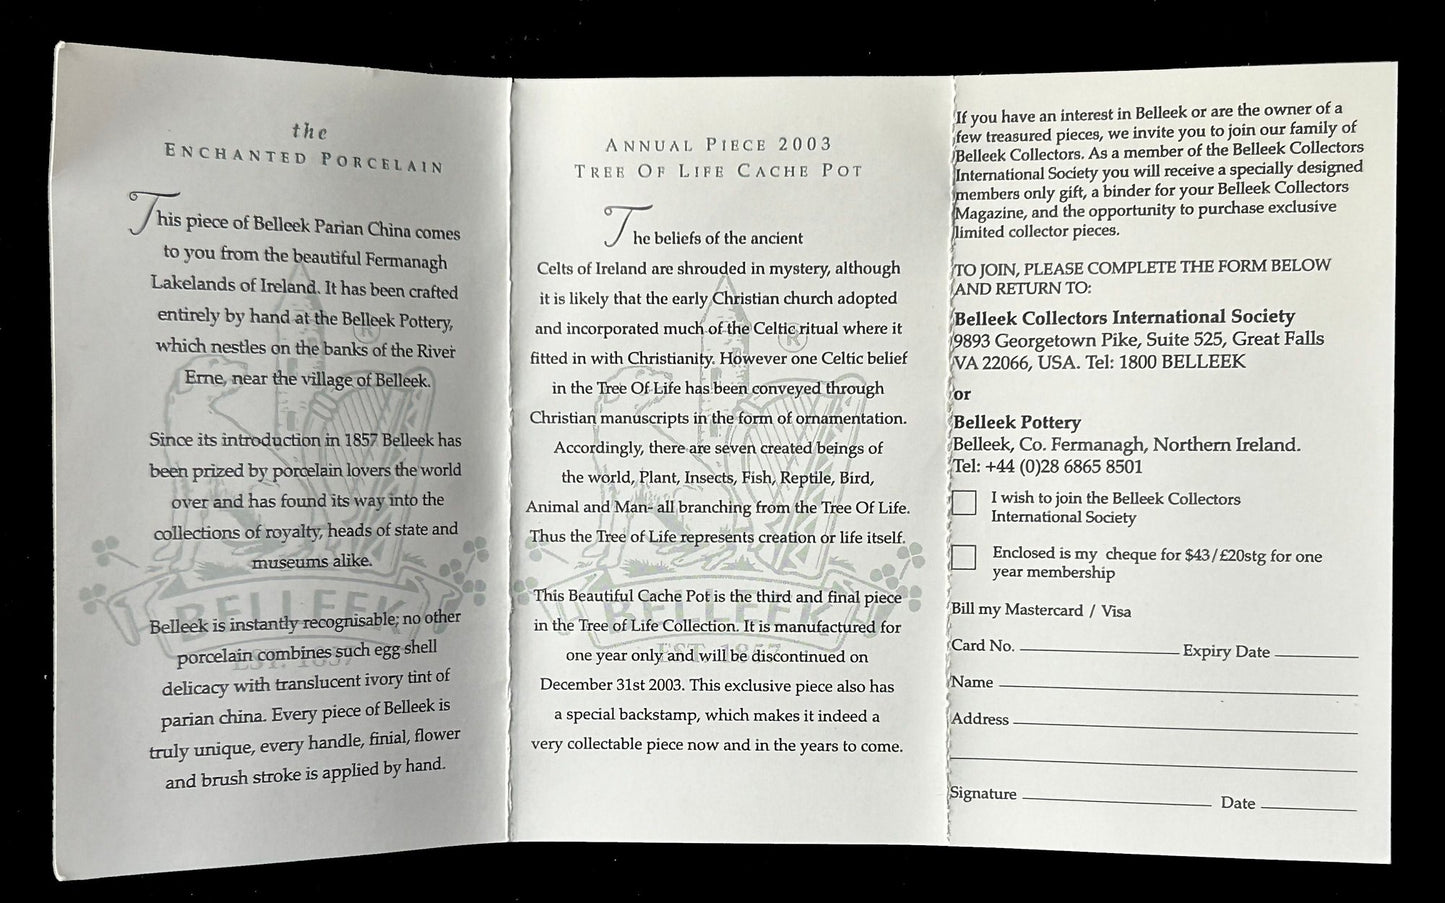 the
ENCHANTED PORCELAIN
This piece of Belleek Parian China comes
to you from the beautiful Fermanagh
Lakelands of Ireland. It has been crafted
entirely by hand at the Belleek Pottery,
which nestles on the banks of the River
Erne, near the village of Belleek.
Since its introduction in 1857 Belleek has
been prized by porcelain lovers the world
over and has found its way into the
collections of royalty, heads of state and
museums alike.
Belleek is instantly recognisable; no other
porcelain combines such egg shell
delicacy with translucent ivory tint of
parian china. Every piece of Belleek is
truly unique, every handle, finial, flower
and brush stroke is applied by hand.
®
BELLEEK
EST. 1857
ANNUAL PIECE 2003
TREE OF LIFE CACHE POT
The beliefs of the ancient
Celts of Ireland are shrouded in mystery, although
it is likely that the early Christian church adopted
and incorporated much of the Celtic ritual where it
fitted in with Christianity. However one Celtic belief
in the Tree Of Life has been conveyed through
Christian manuscripts in the form of ornamentation.
Accordingly, there are seven created beings of
the world, Plant, Insects, Fish, Reptile, Bird,
Animal and Man- all branching from the Tree Of Life.
Thus the Tree of Life represents creation or life itself.
This Beautiful Cache Pot is the third and final piece
in the Tree of Life Collection. It is manufactured for
one year only and will be discontinued on
December 31st 2003. This exclusive piece also has
a special backstamp, which makes it indeed a
very collectable piece now and in the years to come.
®
BELLEEK
EST. 1857
If you have an interest in Belleek or are the owner of a
few treasured pieces, we invite you to join our family of
Belleek Collectors. As a member of the Belleek Collectors
International Society you will receive a specially designed
members only gift, a binder for your Belleek Collectors
Magazine, and the opportunity to purchase exclusive
limited collector pieces.
TO JOIN, PLEASE COMPLETE THE FORM BELOW
AND RETURN TO:
Belleek Collectors International Society
9893 Georgetown Pike, Suite 525, Great Falls
VA 22066, USA. Tel: 1800 BELLEEK
or
Belleek Pottery
Belleek, Co. Fermanagh, Northern Ireland.
Tel: +44 (0)28 6865 8501
I wish to join the Belleek Collectors
International Society
Enclosed is my cheque for $43/£20stg for one
year membership
Bill my Mastercard / Visa
Card No. Expiry Date
Name
Address
Signature Date